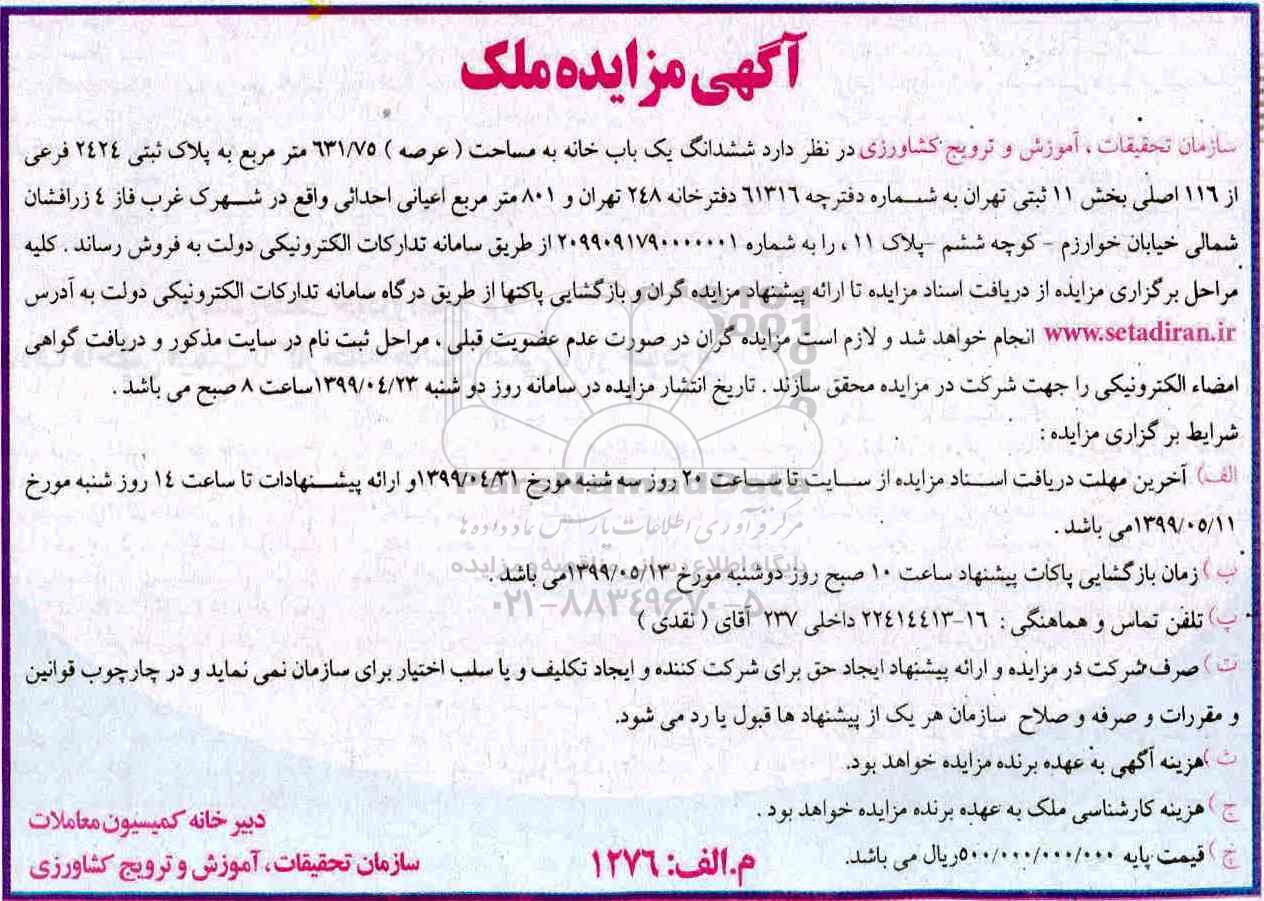 آگهی مزایده ملک
سازمان تحقیقات ، آموزش و ترویج کشاورزی در نظر دارد ششدانگ یک باب خانه به مساحت ( عرصه ) ۶۳۱/۷۵ متر مربع به پلاک ثبتی ۲۴۲۴ فرعی
از ۱۱۶ اصلی بخش ۱۱ ثبتی تهران به شماره دفترچه ۶۱۳۱۶ دفترخانه ۲۴۸ تهران و ۸۰۱ متر مربع اعیانی احداثی واقع در شهرک غرب فاز ۴ زرافشان
شمالی خیابان خوارزم - کوچه ششم -پلاک ۱۱ ، را به شماره ۲۰۹۹۰۹۱۷۹۰۰۰۰۰۰۱ از طریق سامانه تدارکات الکترونیکی دولت به فروش رساند . کلیه
مراحل برگزاری مزایده از دریافت اسناد مزایده تا ارائه پیشنهاد مزایده گران و بازگشایی پاکتها از طریق درگاه سامانه تدارکات الکترونیکی دولت به آدرس
www.setadiran.ir انجام خواهد شد و لازم است مزایده گران در صورت عدم عضویت قبلی ، مراحل ثبت نام در سایت مذکور و دریافت گواهی
امضاء الکترونیکی را جهت شرکت در مزایده محقق سازند . تاریخ انتشار مزایده در سامانه روز دو شنبه ۱۳۹۹/۰۴/۲۳ساعت ۸ صبح می باشد .
شرایط بر گزاری مزایده :
الف) آخرین مهلت دریافت اسناد مزایده از سایت تا ساعت ۲۰ روز سه شنبه مورخ ۱۳۹۹/۰۴/۳۱و ارائه پیشنهادات تا ساعت ۱۴ روز شنبه مورخ
۱۳۹۹/۰۵/۱۱می باشد .
ب ) زمان بازگشایی پاکات پیشنهاد ساعت ۱۰ صبح روز دوشنبه مورخ ۱۳۹۹/۰۵/۱۳می باشد .
پ) تلفن تماس و هماهنگی : ۱۶-۲۲۴۱۴۴۱۳ داخلی ۲۳۷ آقای ( نقدی )
ت ) صرف شرکت در مزایده و ارائه پیشنهاد ایجاد حق برای شرکت کننده و ایجاد تکلیف و یا سلب اختیار برای سازمان نمی نماید و در چارچوب قوانین
و مقررات و صرفه و صلاح سازمان هر یک از پیشنهاد ها قبول یا رد می شود.
ث )هزینه آگهی به عهده برنده مزایده خواهد بود.
ج ) هزینه کارشناسی ملک به عهده برنده مزایده خواهد بود .
چ ) قیمت پایه ۵۰۰/۰۰۰/۰۰۰/۰۰۰ریال می باشد.
م.الف: ۱۲۷۶
دبیر خانه کمیسیون معاملات
سازمان تحقیقات، آموزش و ترویج کشاورزی
ParsNamadData
مرکز فرآوری اطلاعات پارس نماد داده‌ها
پایگاه اطلاع رسانی مناقصه و مزایده
۰۲۱-۸۸۳۴۹۶۷۰-۵